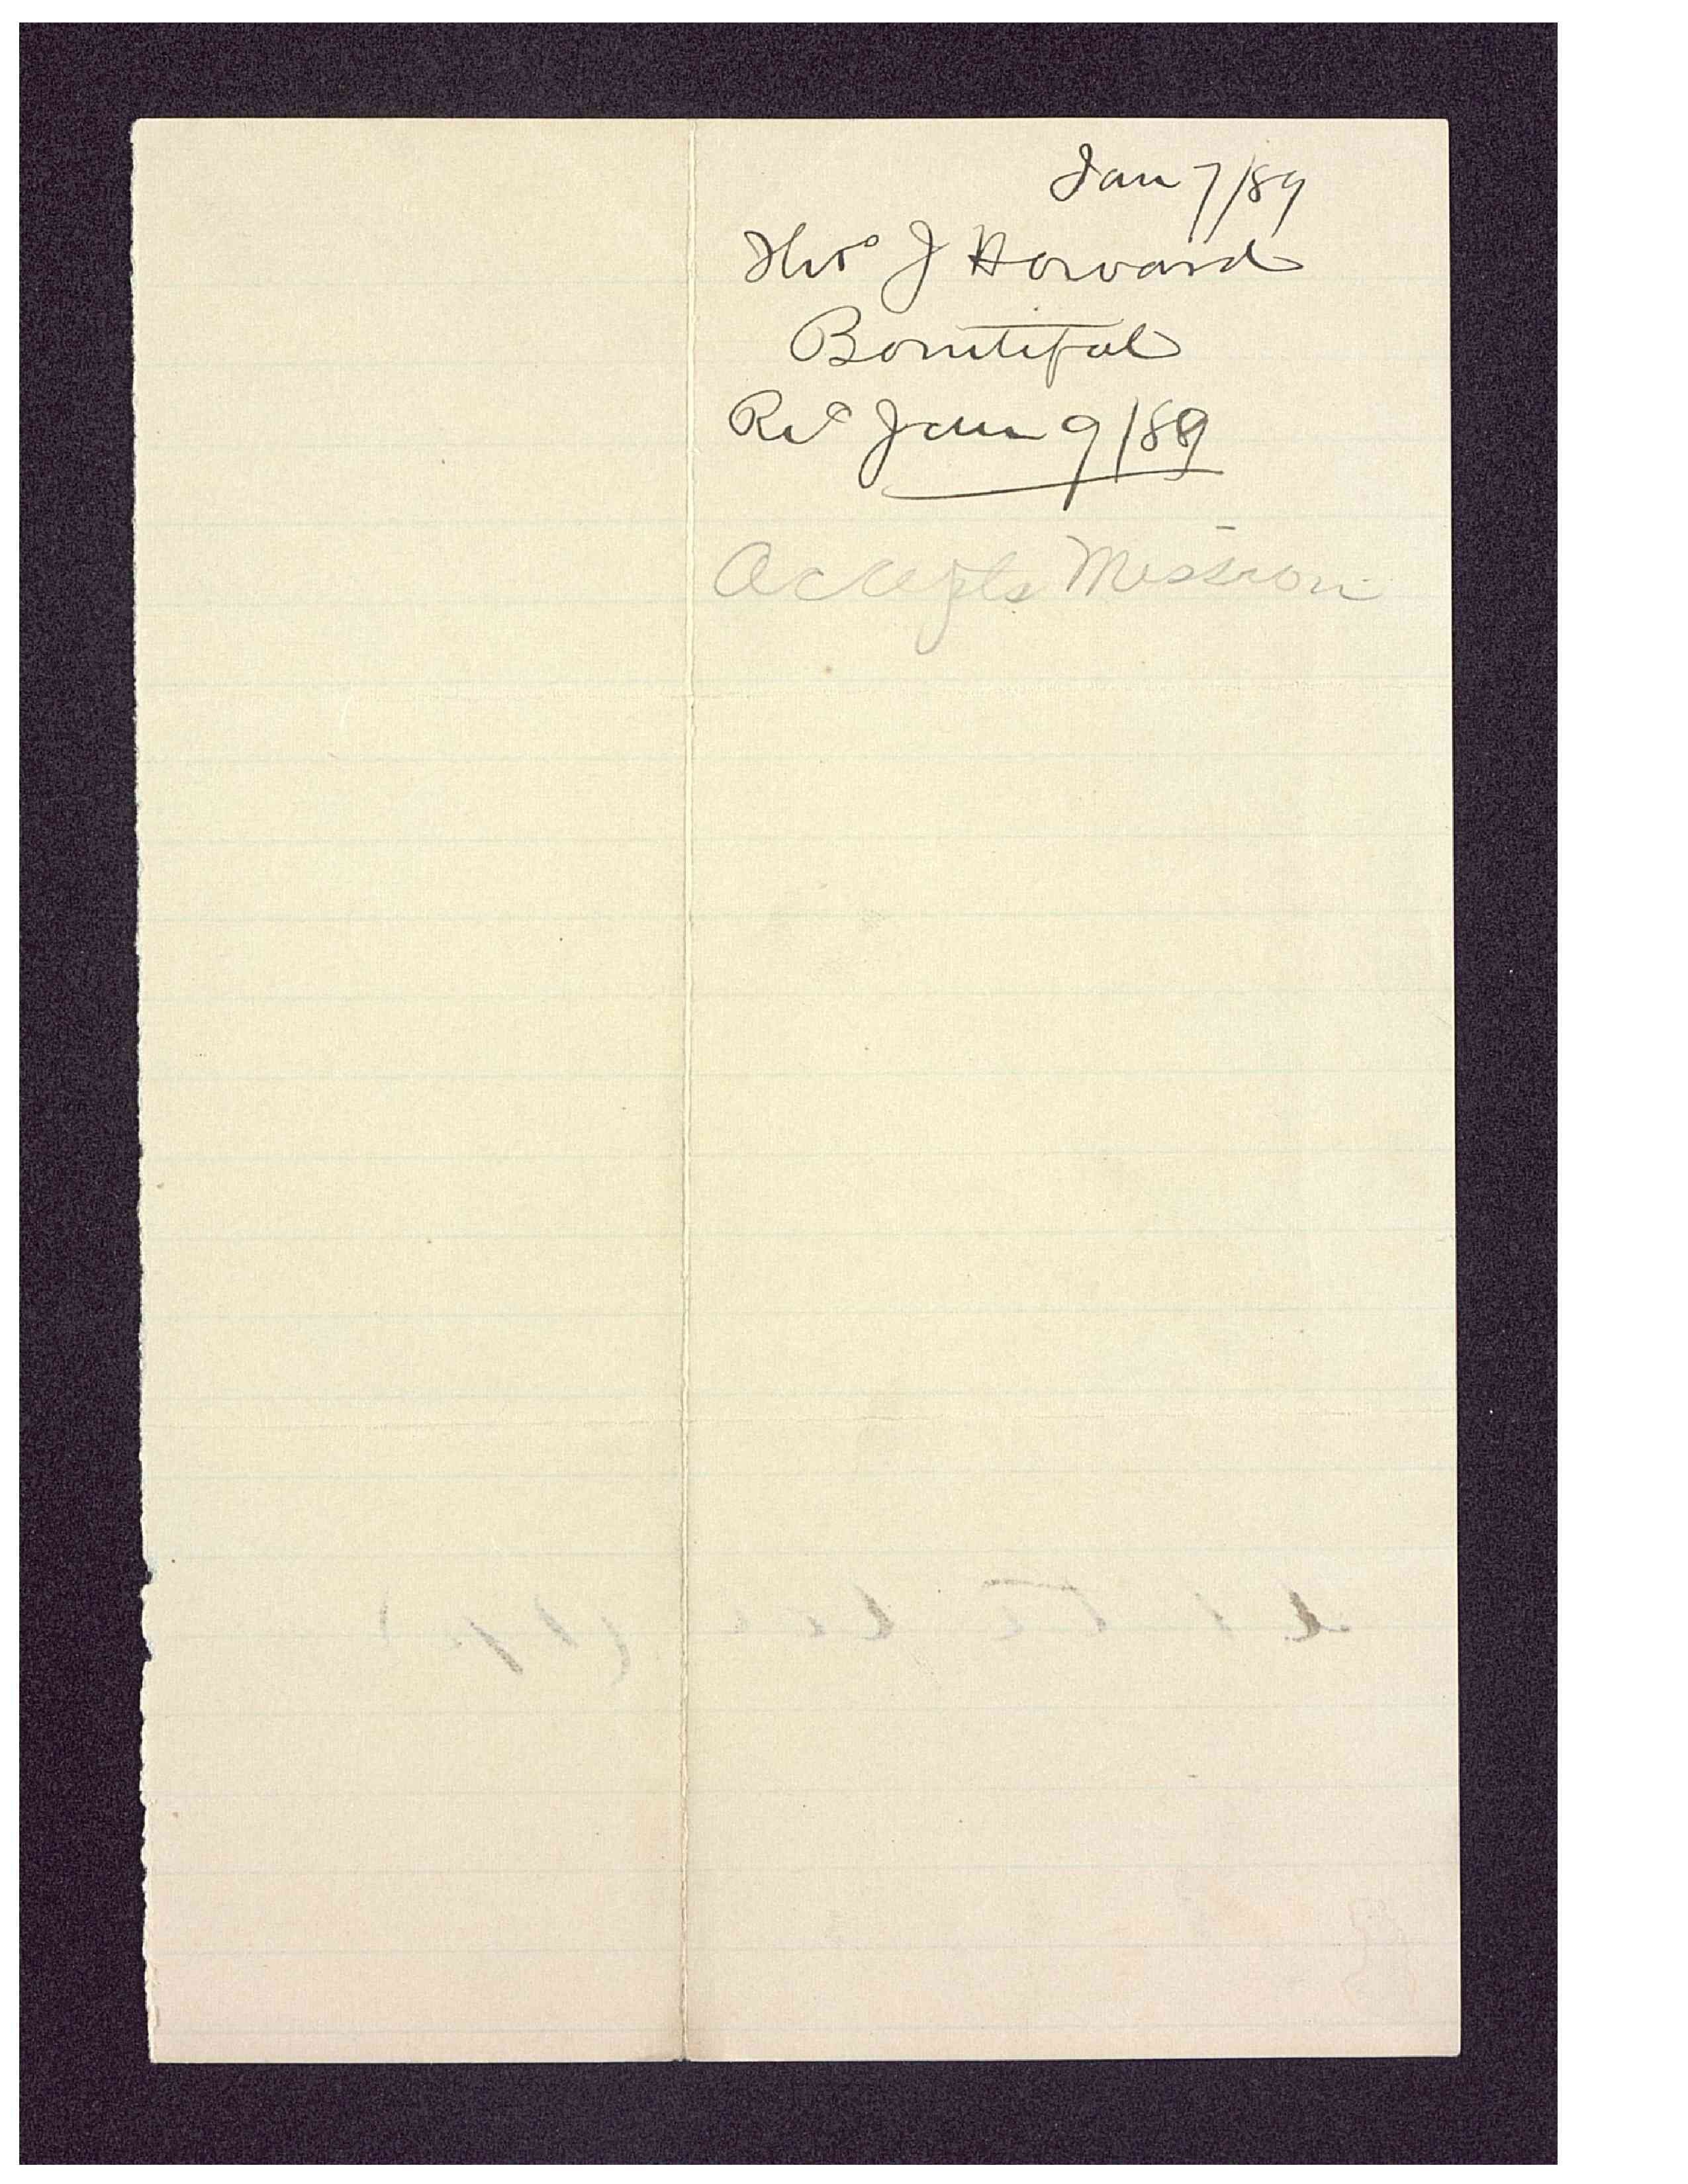 Jan 7/89
Thos J Howard
Bountiful
Rec Jan 9/89
Accepts Mission